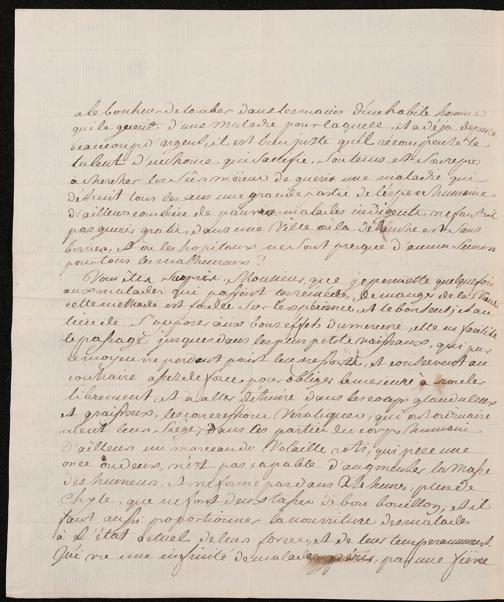 a le bonheur de tomber dans les mains d'une habile homme
qui le guerit d'une maladie pour laquelle, il a deja depensé
beaucoup d'argent, il est bien juste qu'il recompense le
talent d'un homme qui sacrifie, son tems et son repos
à chercher les sûrs moïens de guerir une maladie qui
detruit tous les ans une grande partie de l'espece humaine
d'ailleurs combien de pauvres malades indigents ne faut il
pas guerir gratis, dans une Ville où la débauche est sans
bornes, et où les hopitaux ne sont presque d'aucun secours
pour tous les malheureux?
Vous êtes surpris, Monsieur, que je permette quelquefois
aux malades qui passent les remedes, de manger de la
cette methode est fondée sur l'experience, et le bon sens; et au
lieu de s'opposer aux bons effets du mercure, elle en facilite
le passage jusques dans les plus petits vaisseaux, qui par
ce moyen ne perdent point leur ressort, et conservent au
contraire assez de force pour obliger le mercure à rouler
librement, et à aller detruire dans les corps glanduleux
et graisseux, les concretions Veroliques, qui ont ordinaire-
ment leur siége, dans les parties du corps humain
D'ailleurs un morceau de Volaille roti, qui pese une
once ou deux, n'est pas capable d'augmenter la masse
des humeurs, et ne forme pas dans plus de
Chyle, que ne font deux tasses de bon bouillon, et il
faut aussi proportionner la nourriture des malades
à l'état actuel de leurs forces, et de leur temperamment.
J'ai vu une infinité de malades peris, par une fievre